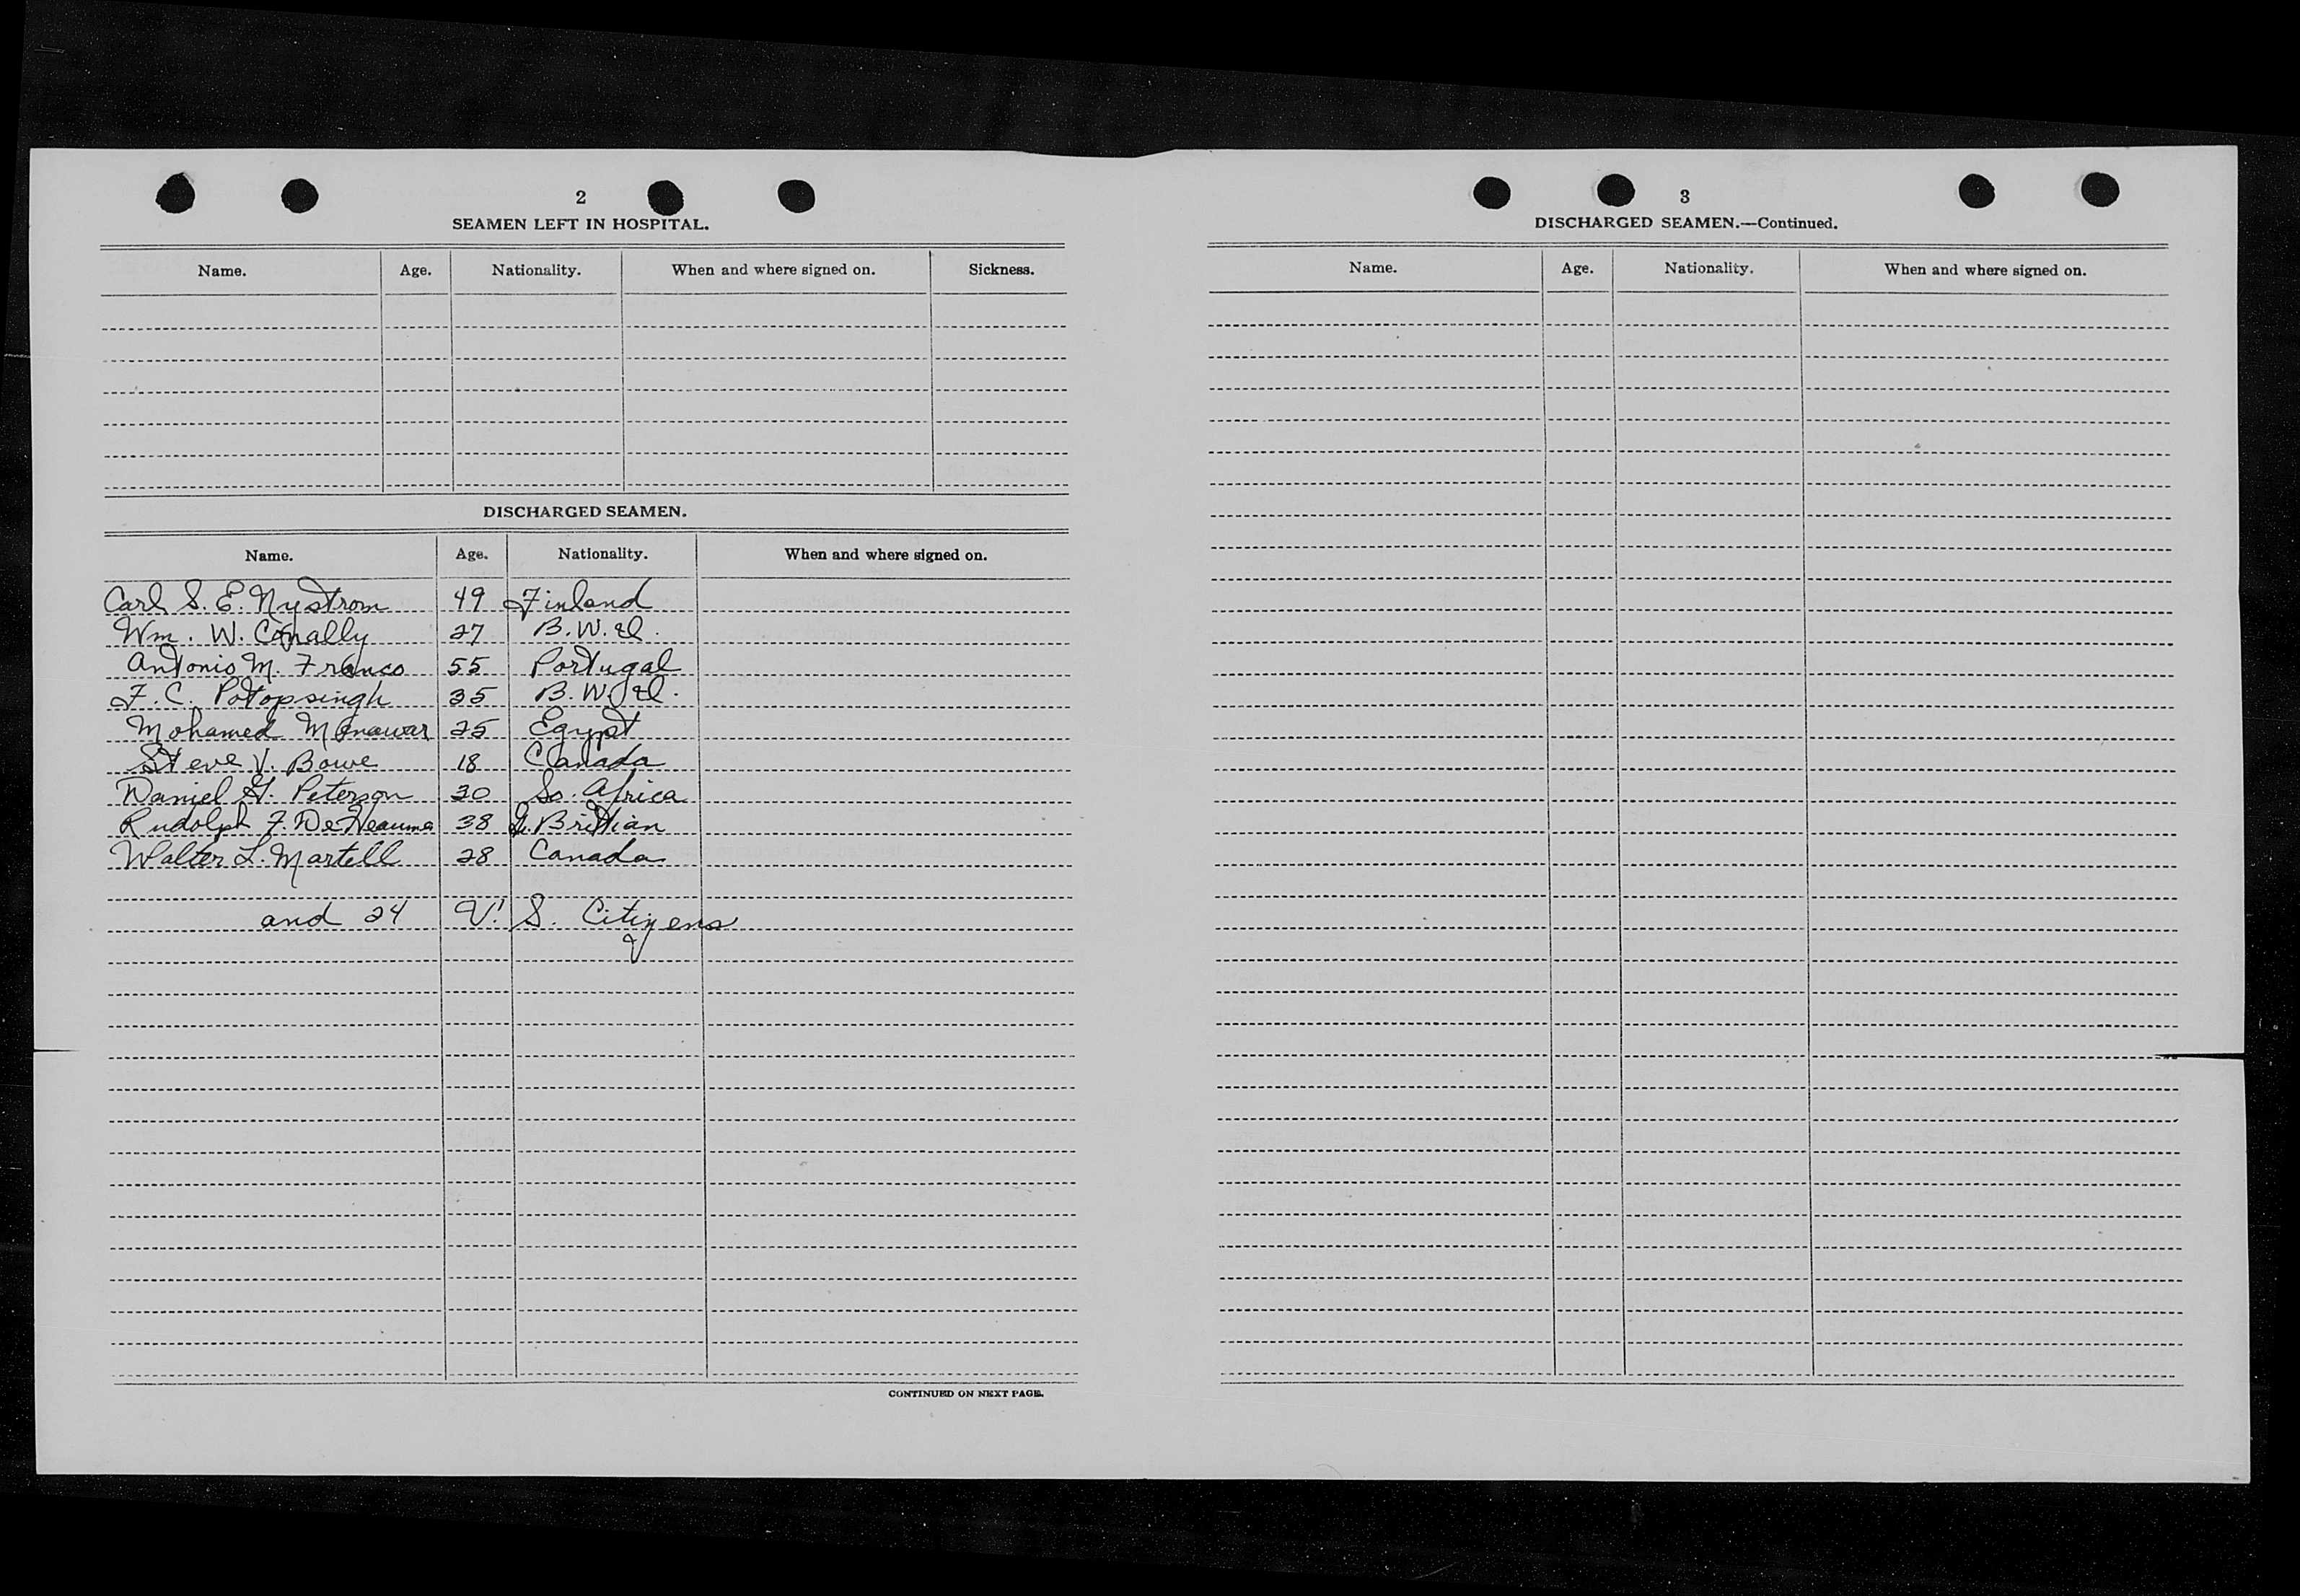 2
SEAMEN LEFT IN HOSPITAL.
Name. Age. Nationality. When and where signed on. Sickness.
DISCHARGED SEAMEN.
Name. Age. Nationality. When and where signed on.
Carl S. E. Nystrom 49 Finland
Wm. W. Conally 27 B.W.I.
Antonio M. Franco 55 Portugal
F. C. Potopsingh 35 B.W.I.
Mohamed Monawar 25 Egypt
Steve V. Bowe 18 Canada
Daniel G. Peterson 30 So. Africa
Rudolph F. 38 G. Brittian
Walter L. Martell 28 Canada
and 24 U. S. Citizens
CONTINUED ON NEXT PAGE.
3
DISCHARGED SEAMEN.—Continued.
Name. Age. Nationality. When and where signed on.